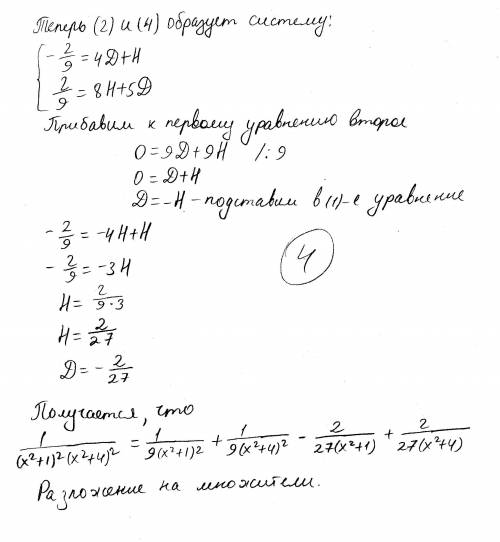 Теперь (2) и (4) образует систему:
{ -2/9 = 4D+H
2/9 = 8H+5D
Прибавим к первому уравнению второе
0 = 9D+9H /:9
0 = D+H
D = -H - подставим в (1)-е уравнение
-2/9 = -4H+H
-2/9 = -3H
H = 2/9·3
H = 2/27
D = -2/27
4
Получается, что
1/(x²+1)²(x²+4)² = 1/9(x²+1)² + 1/9(x²+4)² - 2/27(x²+1) + 2/27(x²+4)
Разложение на множители.